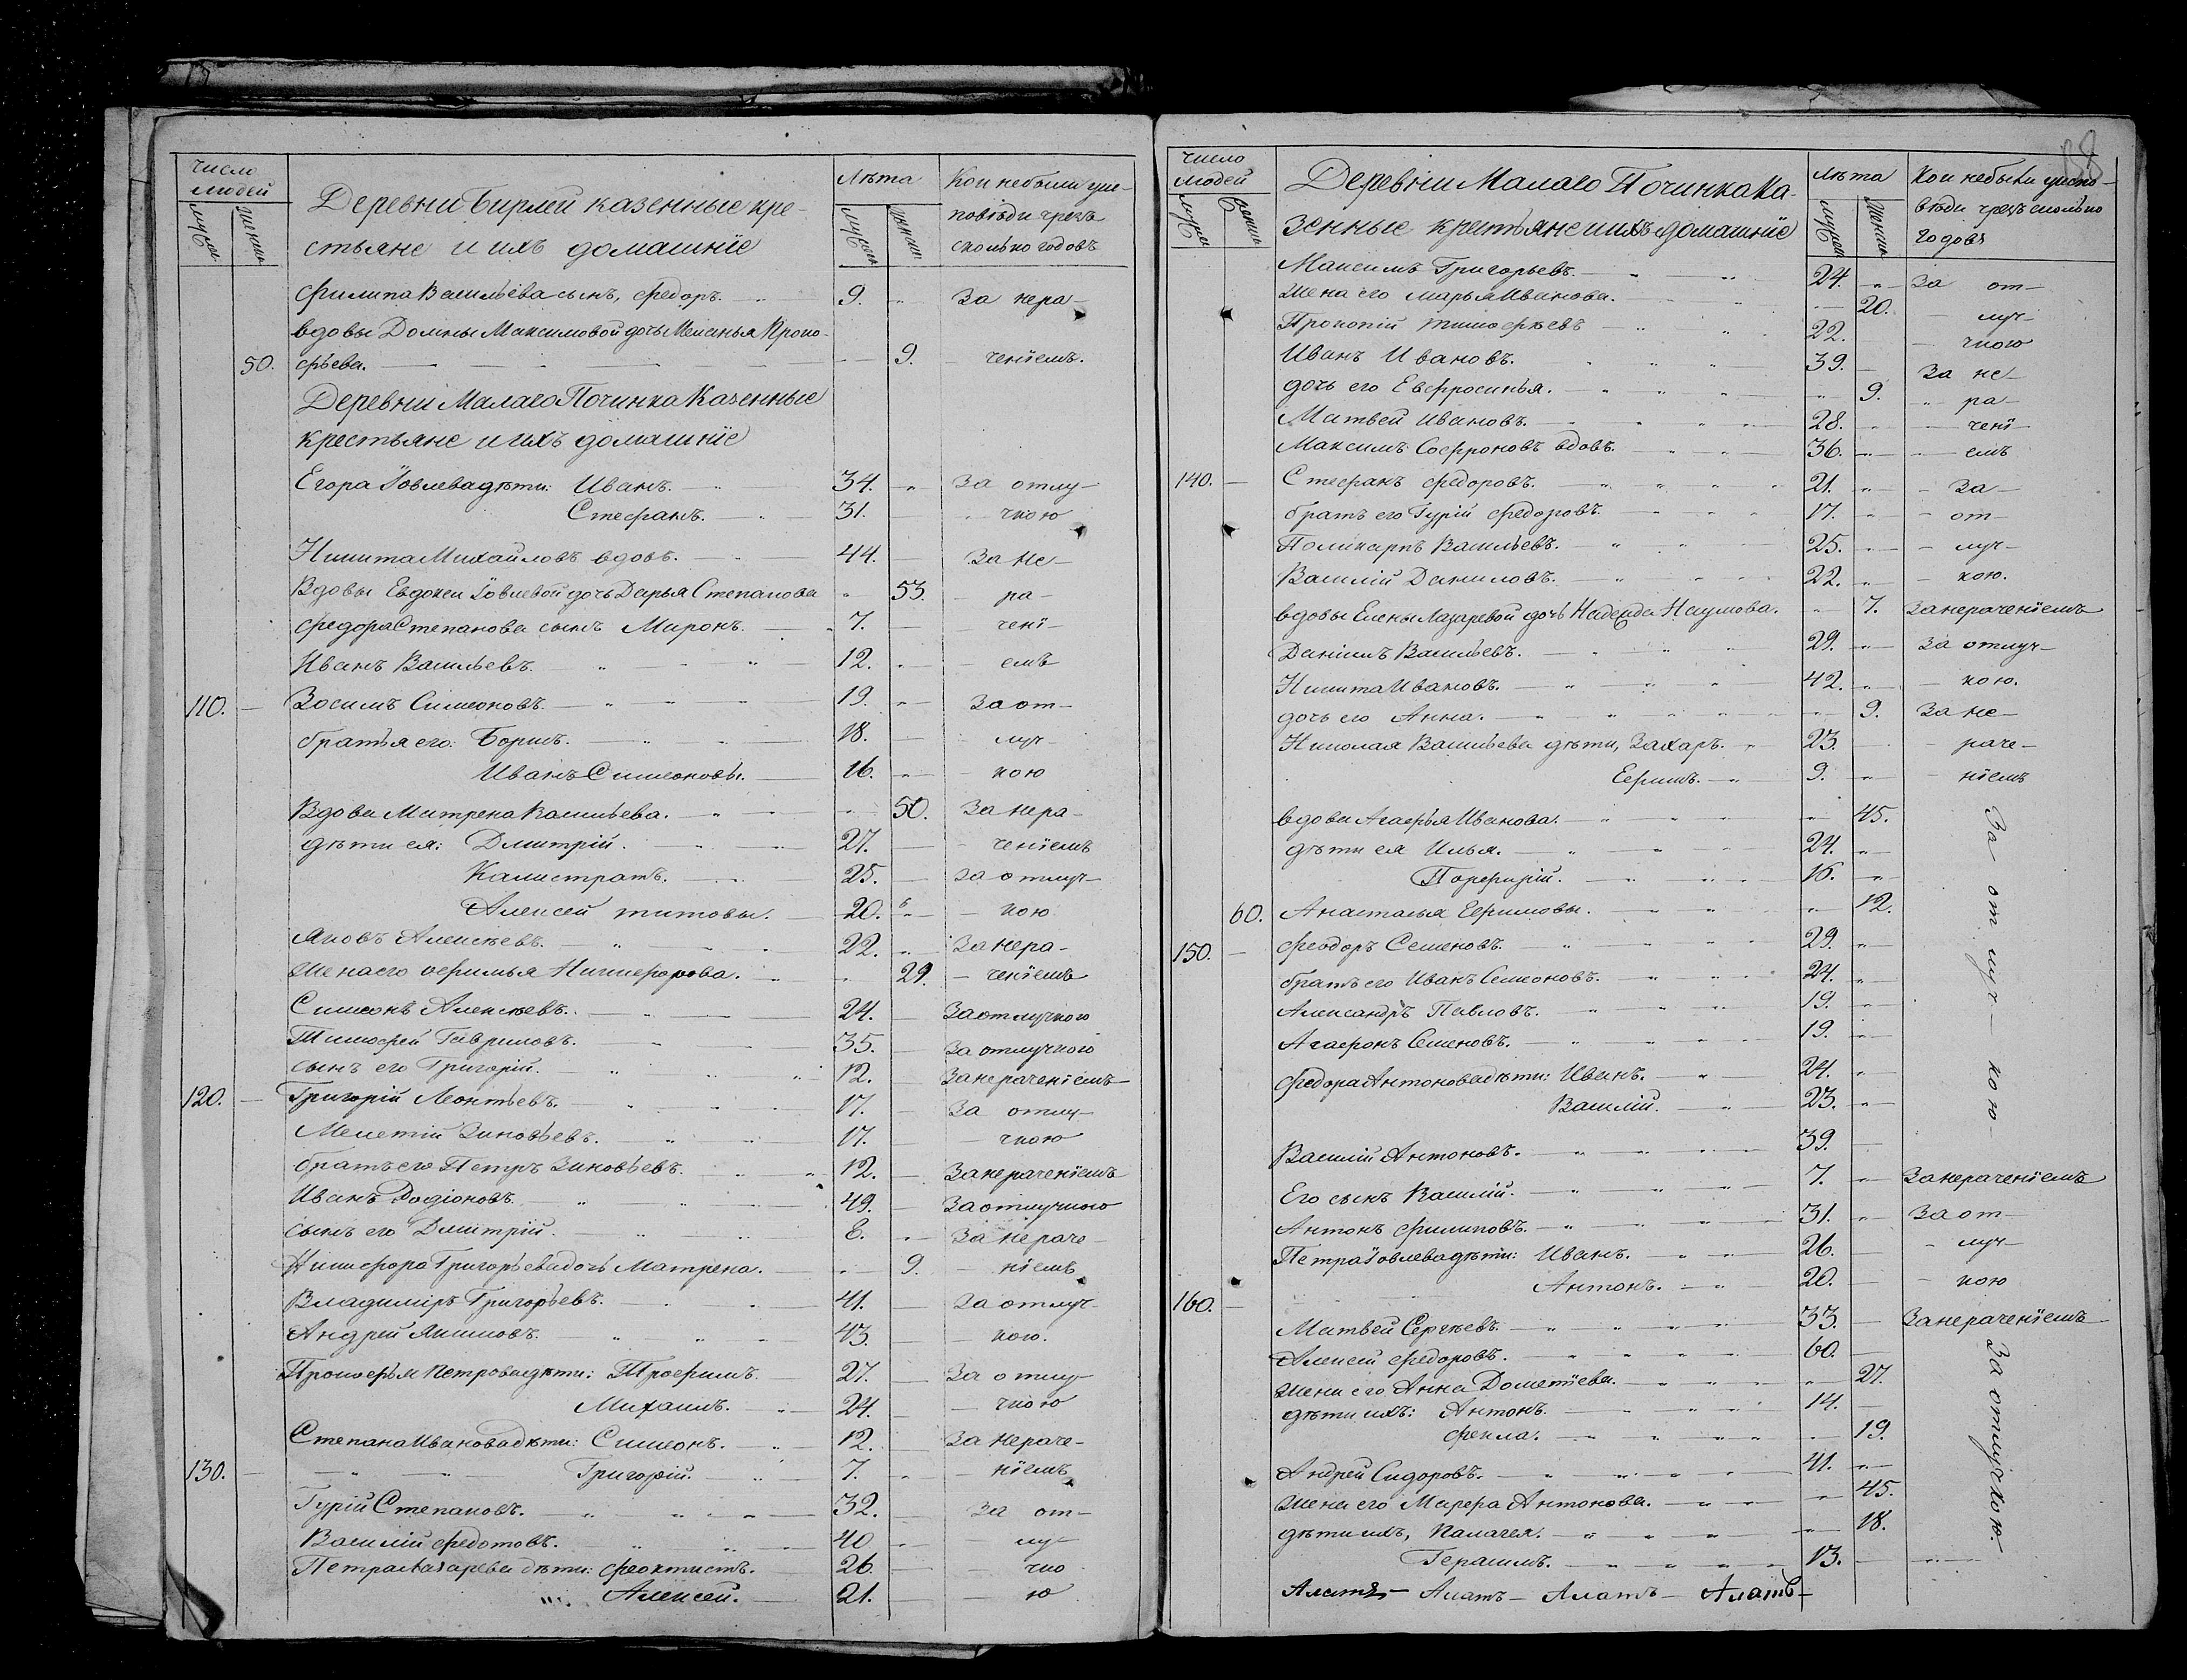 число людей
мужеск
женск
Деревни Бирлей казенные кре-
стьяне и ихъ домашніе
Лѣта
мужеск
женск
Кои небыли у ис-
повѣди чрезъ
сколько годовъ
Филипа Васильева сынъ, Федоръ. 9. За нера-
вдовы Домны Максимовой дочь Меланья Проко-
50. фьева. 9. ченіемъ.
Деревни Малаго Починка Казенные
крестьяне и ихъ домашніе
Егора Іовлева дѣти: Иванъ. 34. За отлу-
Стефанъ. 31. чкою
Никита Михайловъ вдовъ. 44. За не-
Вдовы Евдокеи Іовлевой дочь Дарья Степанова 53. ра-
Федора Степанова сынъ Миронъ. 7. чені-
Иванъ Васильевъ. 12. емъ
110. Зосимъ Симеоновъ. 19. За от-
братья его: Борисъ. 18. луч-
Иванъ Симеоновы. 16. кою
Вдова Матрена Васильева. 50. За нера-
дѣти ея: Димитрій. 27. ченіемъ
Калистратъ. 25. за отлуч-
Алексей титовы. 20. кою
Яковъ Алексѣевъ. 22. За нера-
жена его Никифорова. 29. ченіемъ
Симеонъ Алексѣевъ. 24. За отлучкою
Тимофей Гавриловъ. 35. За отлучкою
сынъ его Григорій. 12. За нераченіемъ
120. Григорій Леонтьевъ. 17. За отлу-
Мелетій Зиновьевъ. 17. чкою
братъ его Петръ Зиновьевъ. 12. За нераченіемъ
Иванъ Родіоновъ. 49. За отлучкою
сынъ его Димитрій. 8. За нераче-
Никифора Григорьева дочь Матрена. 9. ніемъ
Владиміръ Григорьевъ. 41. За отлуч-
Андрей Якимовъ. 43. кою.
Прокофья Петрова дѣти: Трофимъ. 27. За отлу-
Михаилъ. 24. чкою
Степана Иванова дѣти: Симеонъ. 12. За нераче-
130. Григорій. 7. ніемъ
Гурій Степановъ. 32. За от-
Василій Федотовъ. 40 лу-
Петра Лазарева дѣти: Феоктистъ. 26. чко
Алексей. 21. ю
88
число
людей
мужеск
женск
Деревни Малаго Починка Ка-
зенные крестьяне и ихъ домашніе
Лѣта
мужеск
женск
Кои небыли у испо-
вѣди чрезъ сколько
годовъ
Максимъ Григорьевъ. 24. За от-
жена его Марья Иванова. 20. луч-
Прокопій Тимофѣевъ 22. чкою
Иванъ Ивановъ. 39. За не-
дочь его Евфросинья. 9. ра-
Матвей Ивановъ. 28. чені-
Максимъ Софроновъ вдовъ. 36. емъ
140. Стефанъ Федоровъ. 21. За-
братъ его Гурій Федоровъ. 17. от-
Поликарпъ Васильевъ. 25. луч-
Василій Даниловъ. 22. кою.
вдовы Елены Лазаревой дочь Надежда Наумова. 7. За нераченіемъ
Даніилъ Васильевъ. 29. За отлуч-
Никита Ивановъ. 42. кою.
дочь его Анна. 9. За не-
Николая Васильева дѣти, Захаръ. 23. раче-
Ефимъ. 9. ніемъ
вдова Агафья Иванова. 45.
дѣти ея Илья. 24.
Порфирій. 16.
60. Анастасья Ефимовы. 12.
150. Феодоръ Семеновъ. 29.
братъ его Иванъ Семеновъ. 24.
Александръ Павловъ. 19.
Агафонъ Семеновъ. 19.
Федора Антонова дѣти: Иванъ. 24.
Василій. 23.
Василій Антоновъ. 39.
За отлуч-кою
Его сынъ Василій. 7. За нераченіемъ
Антонъ Филиповъ. 31. За от-
Петра Іовлева дѣти: Иванъ. 26. луч-
Антонъ. 20. кою
160.
Матвей Сергѣевъ. 33. За нераченіемъ
Алексей Федоровъ. 60.
жена его Анна Дометіева. 27.
дѣти ихъ: Антонъ. 14.
Фекла. 19.
Андрей Сидоровъ. 41.
жена его Марфа Антонова. 45.
дѣти ихъ, Палагея. 18.
Герасимъ. 13.
За отлучкою.